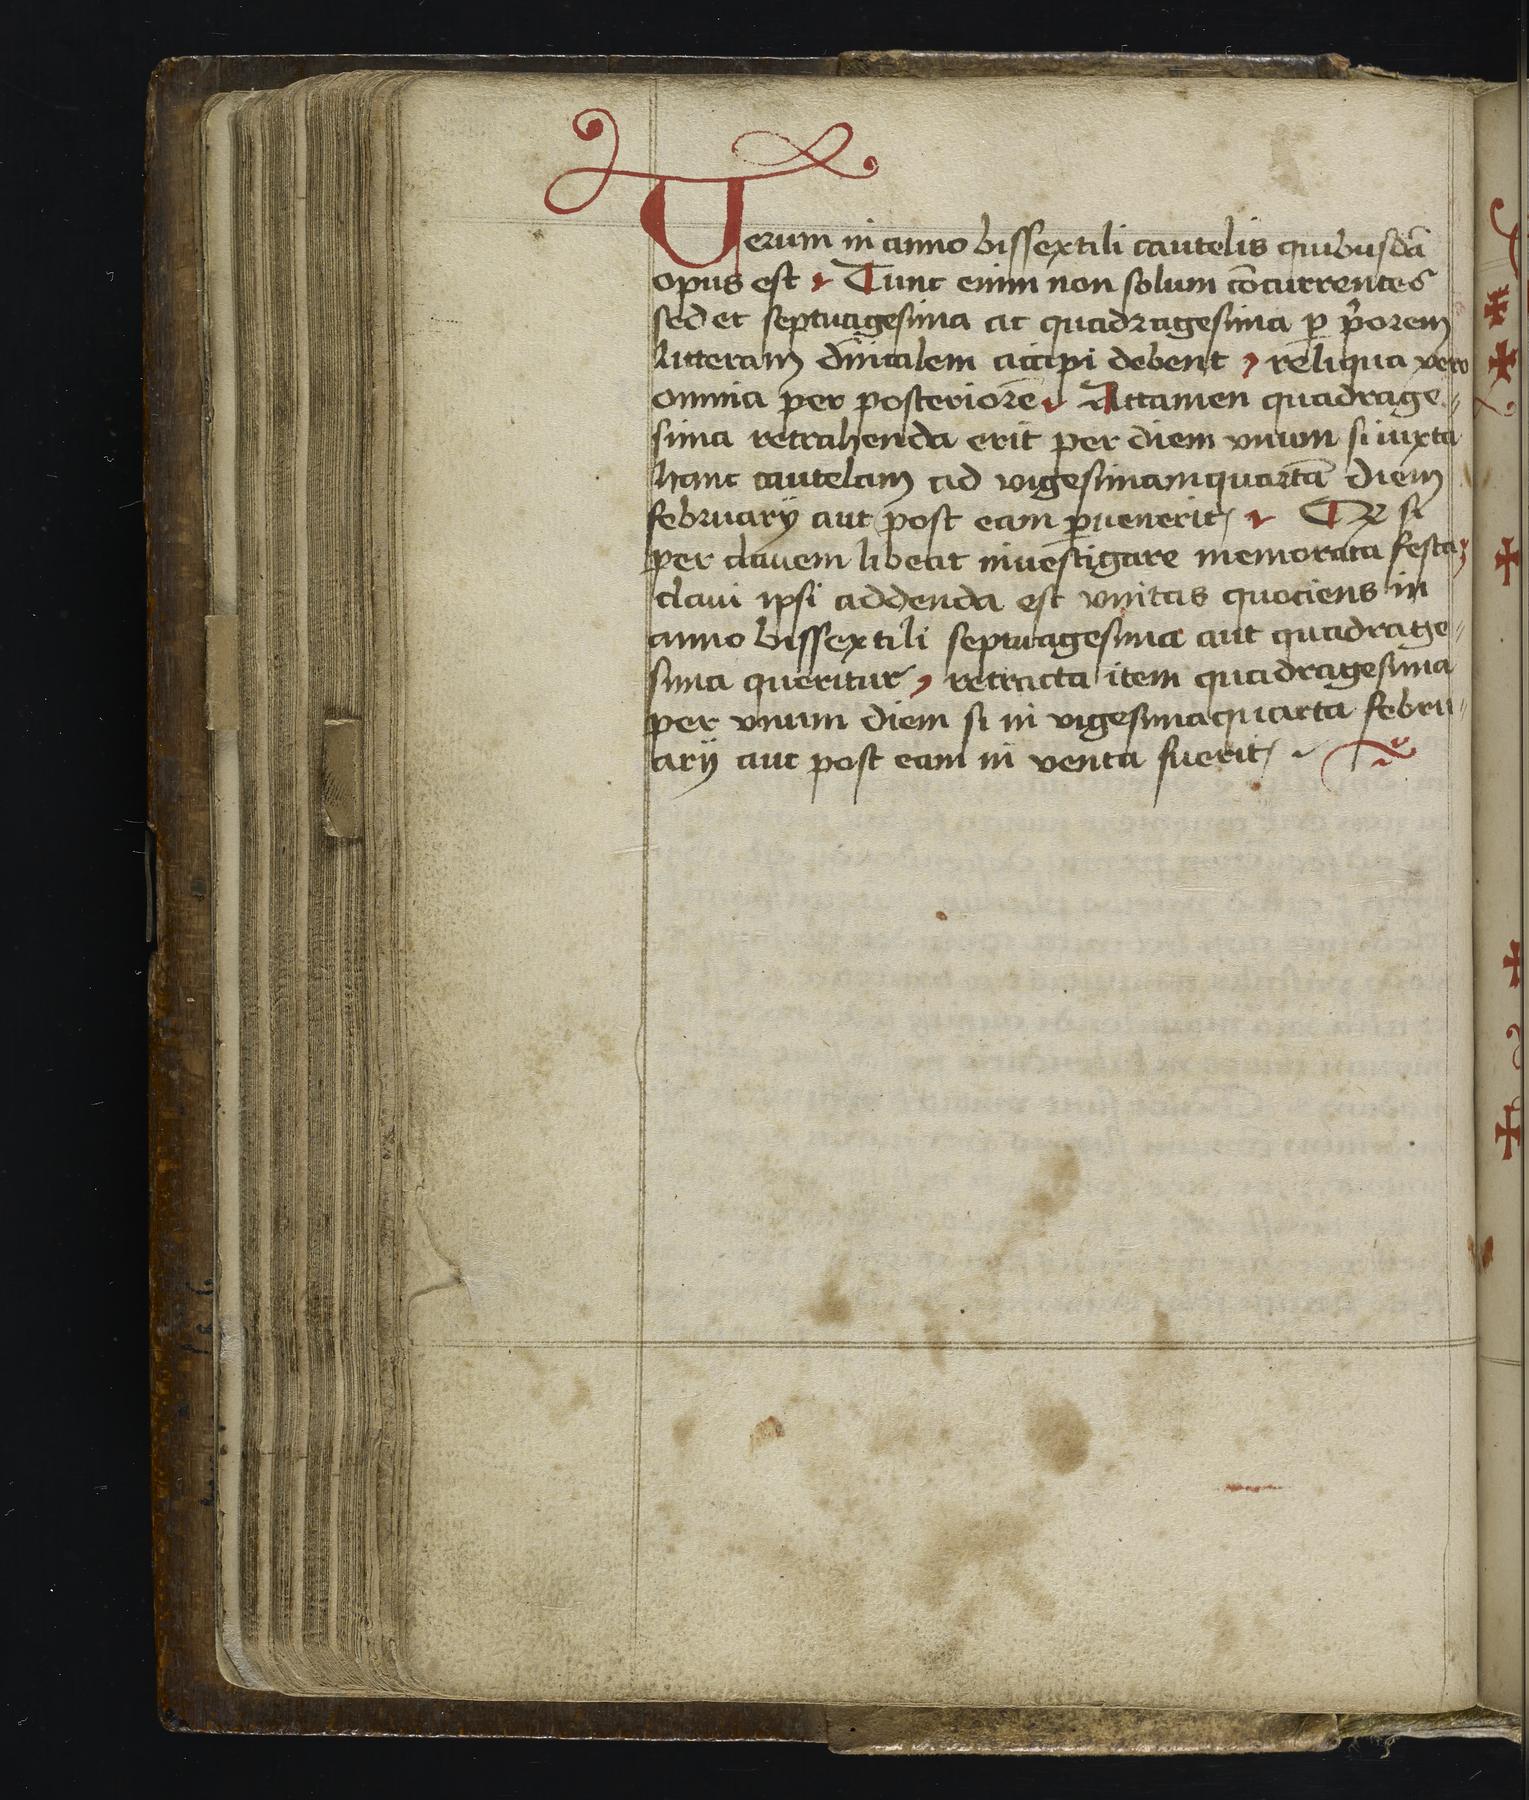 Uerum in anno bissextili cautelis quibusdā
opus est Tunc enim non solum cōcurrentes
sed et septuagesima ac quadragesima ꝑ p̓orem
litteram dn̄icalem accipi debent , reliqua vero
omnia per posteriorē Attamen quadrage„
sima retrahenda erit per diem vnum si iuxta
hanc cautelam ad vigesimamquartā diem
februarÿ aut post eam ꝑuenerit / Qz si
per clauem libeat inuestigare memorata festa,
claui ipsi addenda est vnitas quociens in
anno bissextili septuagesima aut quadrage„
sima queritur , retracta item quadragesima
per vnum diem si in vigesimaquarta febru„
arÿ aut post eam in venta fuerit /